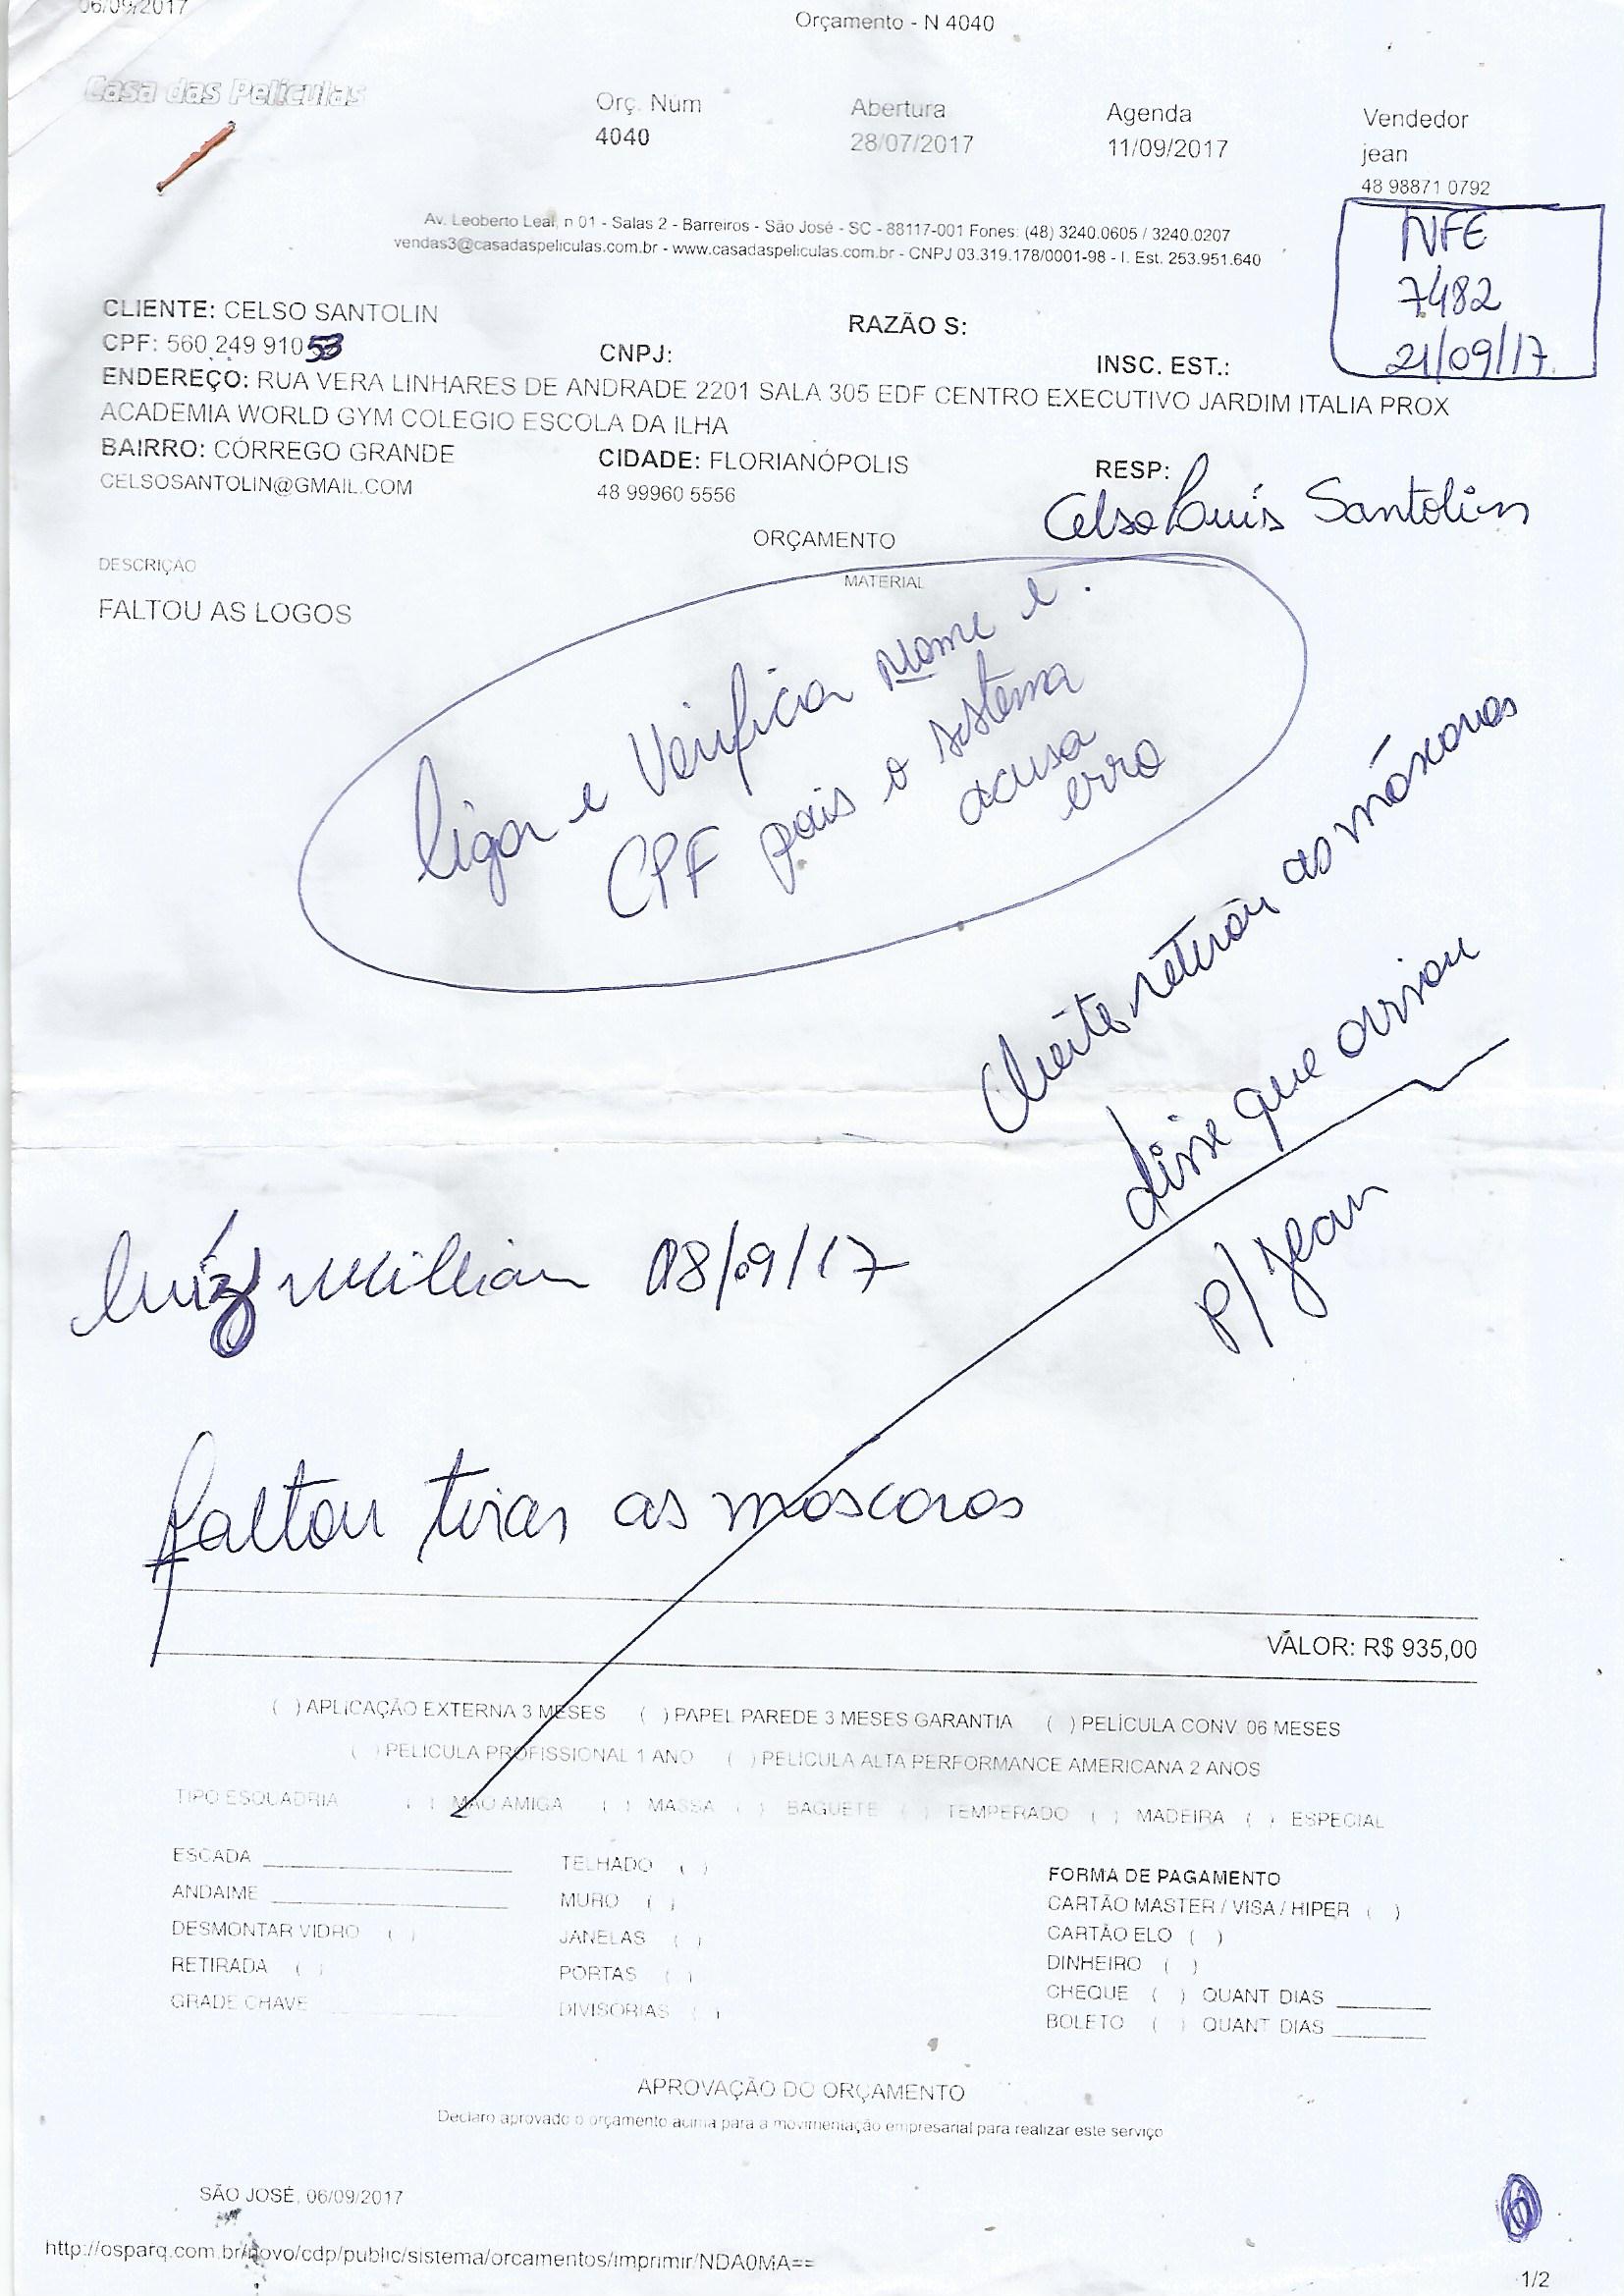 06/09/2017
Orçamento - N 4040
Casa das Películas
Orç. Num
4040
Abertura
28/07/2017
Agenda
11/09/2017
Vendedor
jean
48 98871 0792
Av. Leoberto Leal, n 01 - Salas 2 - Barreiros - São José - SC - 88117-001 Fones: (48) 3240.0605 / 3240.0207
vendas3@casadaspeliculas.com.br - www.casadaspeliculas.com.br - CNPJ 03.319.178/0001-98 - I. Est. 253.951.640
NFE
7482
21/09/17
CLIENTE: CELSO SANTOLIN
RAZÃO S:
CPF: 560 249 910 53
CNPJ:
INSC. EST.:
ENDEREÇO: RUA VERA LINHARES DE ANDRADE 2201 SALA 305 EDF CENTRO EXECUTIVO JARDIM ITALIA PROX
ACADEMIA WORLD GYM COLEGIO ESCOLA DA ILHA
BAIRRO: CÓRREGO GRANDE
CIDADE: FLORIANÓPOLIS
RESP:
CELSOSANTOLIN@GMAIL.COM
48 99960 5556
Celso Luís Santolin
ORÇAMENTO
DESCRIÇÃO
MATERIAL
FALTOU AS LOGOS
ligar e Verificar nome e
CPF pois o sistema
acusa
erro
retirou as máscaras
disse que avisou
p/ Jean
Luíz Willian 08/09/17
faltou tirar as mascaras
VALOR: R$ 935,00
( ) APLICAÇÃO EXTERNA 3 MESES ( ) PAPEL PAREDE 3 MESES GARANTIA ( ) PELÍCULA CONV. 06 MESES
( ) PELICULA PROFISSIONAL 1 ANO ( ) PELÍCULA ALTA PERFORMANCE AMERICANA 2 ANOS
TIPO ESQUADRIA ( ) MÃO AMIGA ( ) MASSA ( ) BAGUETE ( ) TEMPERADO ( ) MADEIRA ( ) ESPECIAL
ESCADA ____________
TELHADO ( )
FORMA DE PAGAMENTO
ANDAIME ____________
MURO ( )
CARTÃO MASTER / VISA / HIPER ( )
DESMONTAR VIDRO ( )
JANELAS ( )
CARTÃO ELO ( )
RETIRADA ( )
PORTAS ( )
DINHEIRO ( )
GRADE CHAVE ____________
DIVISORIAS ( )
CHEQUE ( ) QUANT DIAS ______
BOLETO ( ) QUANT DIAS ______
APROVAÇÃO DO ORÇAMENTO
Declaro aprovado o orçamento acima para a movimentação empresarial para realizar este serviço
SÃO JOSÉ, 06/09/2017
http://osparq.com.br/novo/cdp/public/sistema/orcamentos/imprimir/NDA0MA==
1/2